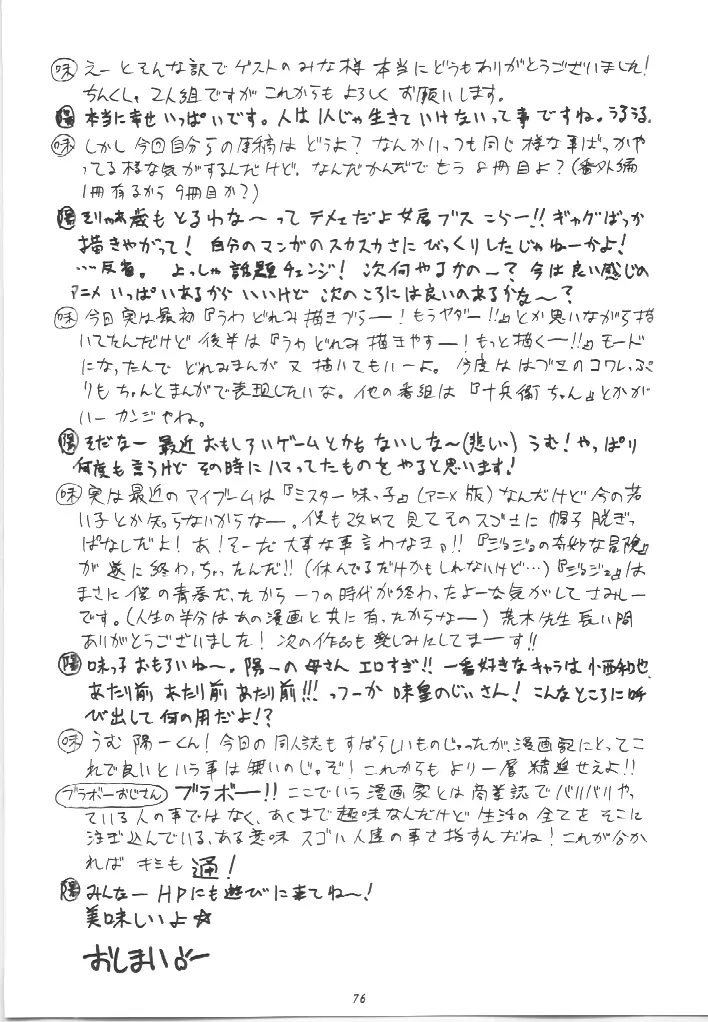 味 えーとそんな訳でゲストのみな様 本当にどうもありがとうございました!
ちんくし。2人組ですがこれからもよろしくお願いします。
陽 本当に幸せいっぱいです。人は1人じゃ生きていけないって事ですね。うるうる。
味 しかし今回自分らの原稿はどうよ?なんかいっつも同じ様な事ばっかや
ってる様な気がするんだけど、なんだかんだでもう8冊目よ?(番外編
1冊有るから9冊目か?)
陽 そりゃ歳もとるわな〜ってテメェだよ女房ブスこらー!!ギャグばっか
描きやがって!自分のマンガのスカスカさにびっくりしたじゃねーかよ!
…反省。よっしゃ話題チェンジ!次何やるかの〜?今は良い感じの
アニメいっぱいあるからいいけど次のころには良いのあるかな〜?
味 今回実は最初『うわどれみ描きづらー!もうヤダー!!』とか思いながら描
いてたんだけど後半は『うわどれみ描きやすー!もっと描くー!!』モード
になったんでどれみまんが又描いてもいーよ。今度ははづきのコワレっぷ
りもちゃんとまんがで表現したいな。他の番組は『十兵衛ちゃん』とかが
いーカンジやね。
陽 そだなー最近おもしろいゲームとかもないしな〜(悲しい)うむ!やっぱり
何度も言うけどその時にハマってたものをやると思います!
味 実は最近のマイブームは『ミスター味っ子』(アニメ版)なんだけど今の若
い子とか知らないからなー。僕も改めて見てそのスゴさに帽子脱ぎっ
ぱなしだよ!あ!そーだ大事な事言わなきゃ!!『ジョジョの奇妙な冒険』
が遂に終わっちゃったんだ!!(休んでるだけかもしれないけど…)『ジョジョ』は
まさに僕の青春だったから一つの時代が終わったよーな気がしてさみしー
です。(人生の半分はあの漫画と共に有ったからなー)荒木先生長い間
ありがとうございました!次の作品も楽しみにしてまーす!!
陽 味っ子おもろいね〜。陽一の母さんエロすぎ!!一番好きなキャラは小西和也
あたり前 あたり前 あたり前!!!っつーか味皇のじいさん!こんなところに呼
び出して何の用だよ!?
味 うむ陽一くん!今回の同人誌もすばらしいものじゃったが、漫画家にとってこ
れで良いという事は無いのじゃぞ!これからもより一層精進せえよ!!
ブラボーおじさん ブラボー!!ここでいう漫画家とは商業誌でバリバリやっ
ている人の事ではなく、あくまで趣味なんだけど生活の全てをそこに
注ぎ込んでいる、ある意味スゴい人達の事を指すんだね!これが分か
ればキミも通!
陽 みんなーHPにも遊びに来てね〜!
美味しいよ☆
おしまい
76